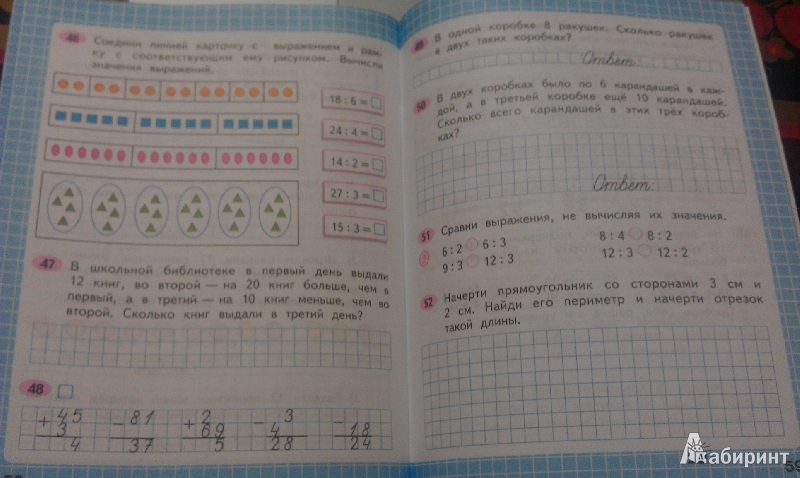 46 Соедини линией карточку с выражением и рам-
ку с соответствующим ему рисунком. Вычисли
значения выражений.
18 : 6 =
24 : 4 =
14 : 2 =
27 : 3 =
15 : 3 =
47 В школьной библиотеке в первый день выдали
12 книг, во второй — на 20 книг больше, чем в
первый, а в третий — на 10 книг меньше, чем во
второй. Сколько книг выдали в третий день?
48
+ 45 − 81 + 2 − 3 −
3 69 4 18
4 37 5 28 24
49 В одной коробке 8 ракушек. Сколько ракушек
в двух таких коробках?
Ответ:
50 В двух коробках было по 6 карандашей в каж-
дой, а в третьей коробке ещё 10 карандашей.
Сколько всего карандашей в этих трёх короб-
ках?
Ответ:
51 Сравни выражения, не вычисляя их значения.
6 : 2 6 : 3 8 : 4 8 : 2
9 : 3 12 : 3 12 : 3 12 : 2
52 Начерти прямоугольник со сторонами 3 см и
2 см. Найди его периметр и начерти отрезок
такой длины.
59
Лабиринт